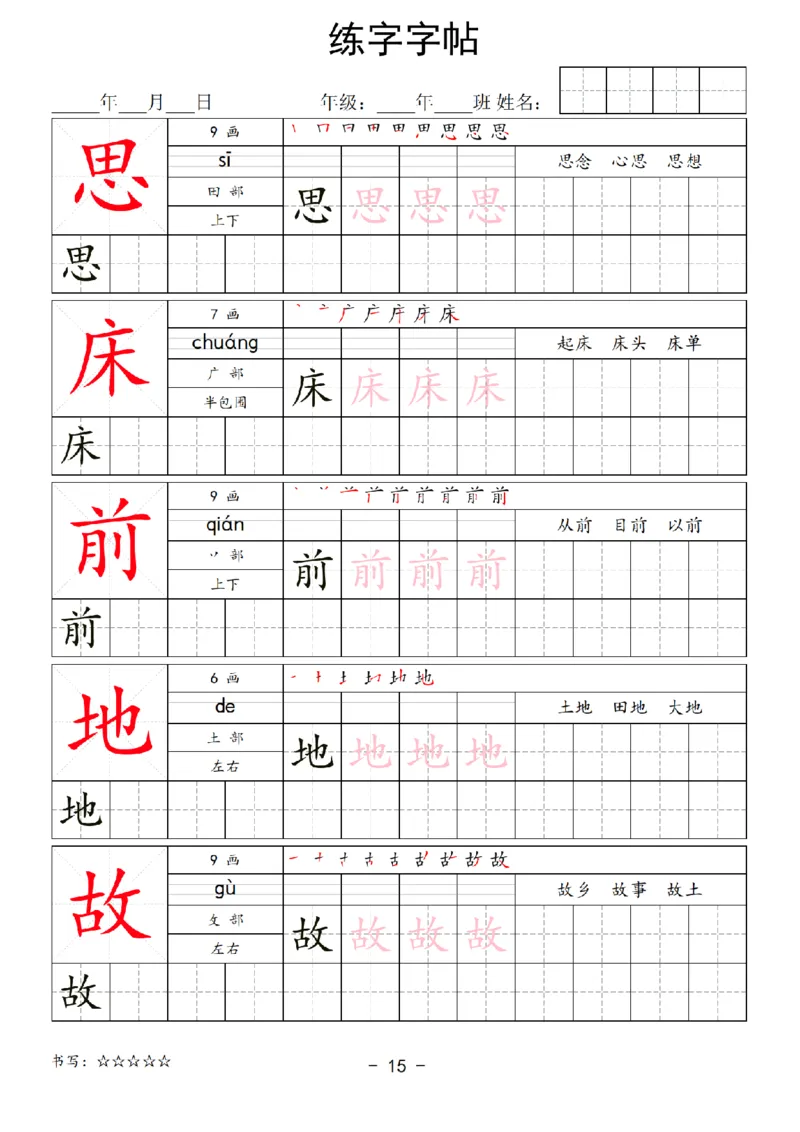 练字字帖
____年___月___日 年级：____年____班 姓名：
思 9 画 丨 冂 日 田 田 思 思 思 思
sī 思念 心思 思想
田 部 思 思 思 思
上下
思
床 7 画 丶 亠 广 户 庄 床 床
chuáng 起床 床头 床单
广 部 床 床 床 床
半包围
床
前 9 画 前
qián 从前 目前 以前
丷 部 前 前 前 前
上下
前
地 6 画 一 十 土 地 地 地
de 土地 田地 大地
土 部 地 地 地 地
左右
地
故 9 画 一 十 古 故
gù 故乡 故事 故土
攵 部 故 故 故 故
左右
故
书写：☆☆☆☆☆
- 15 -